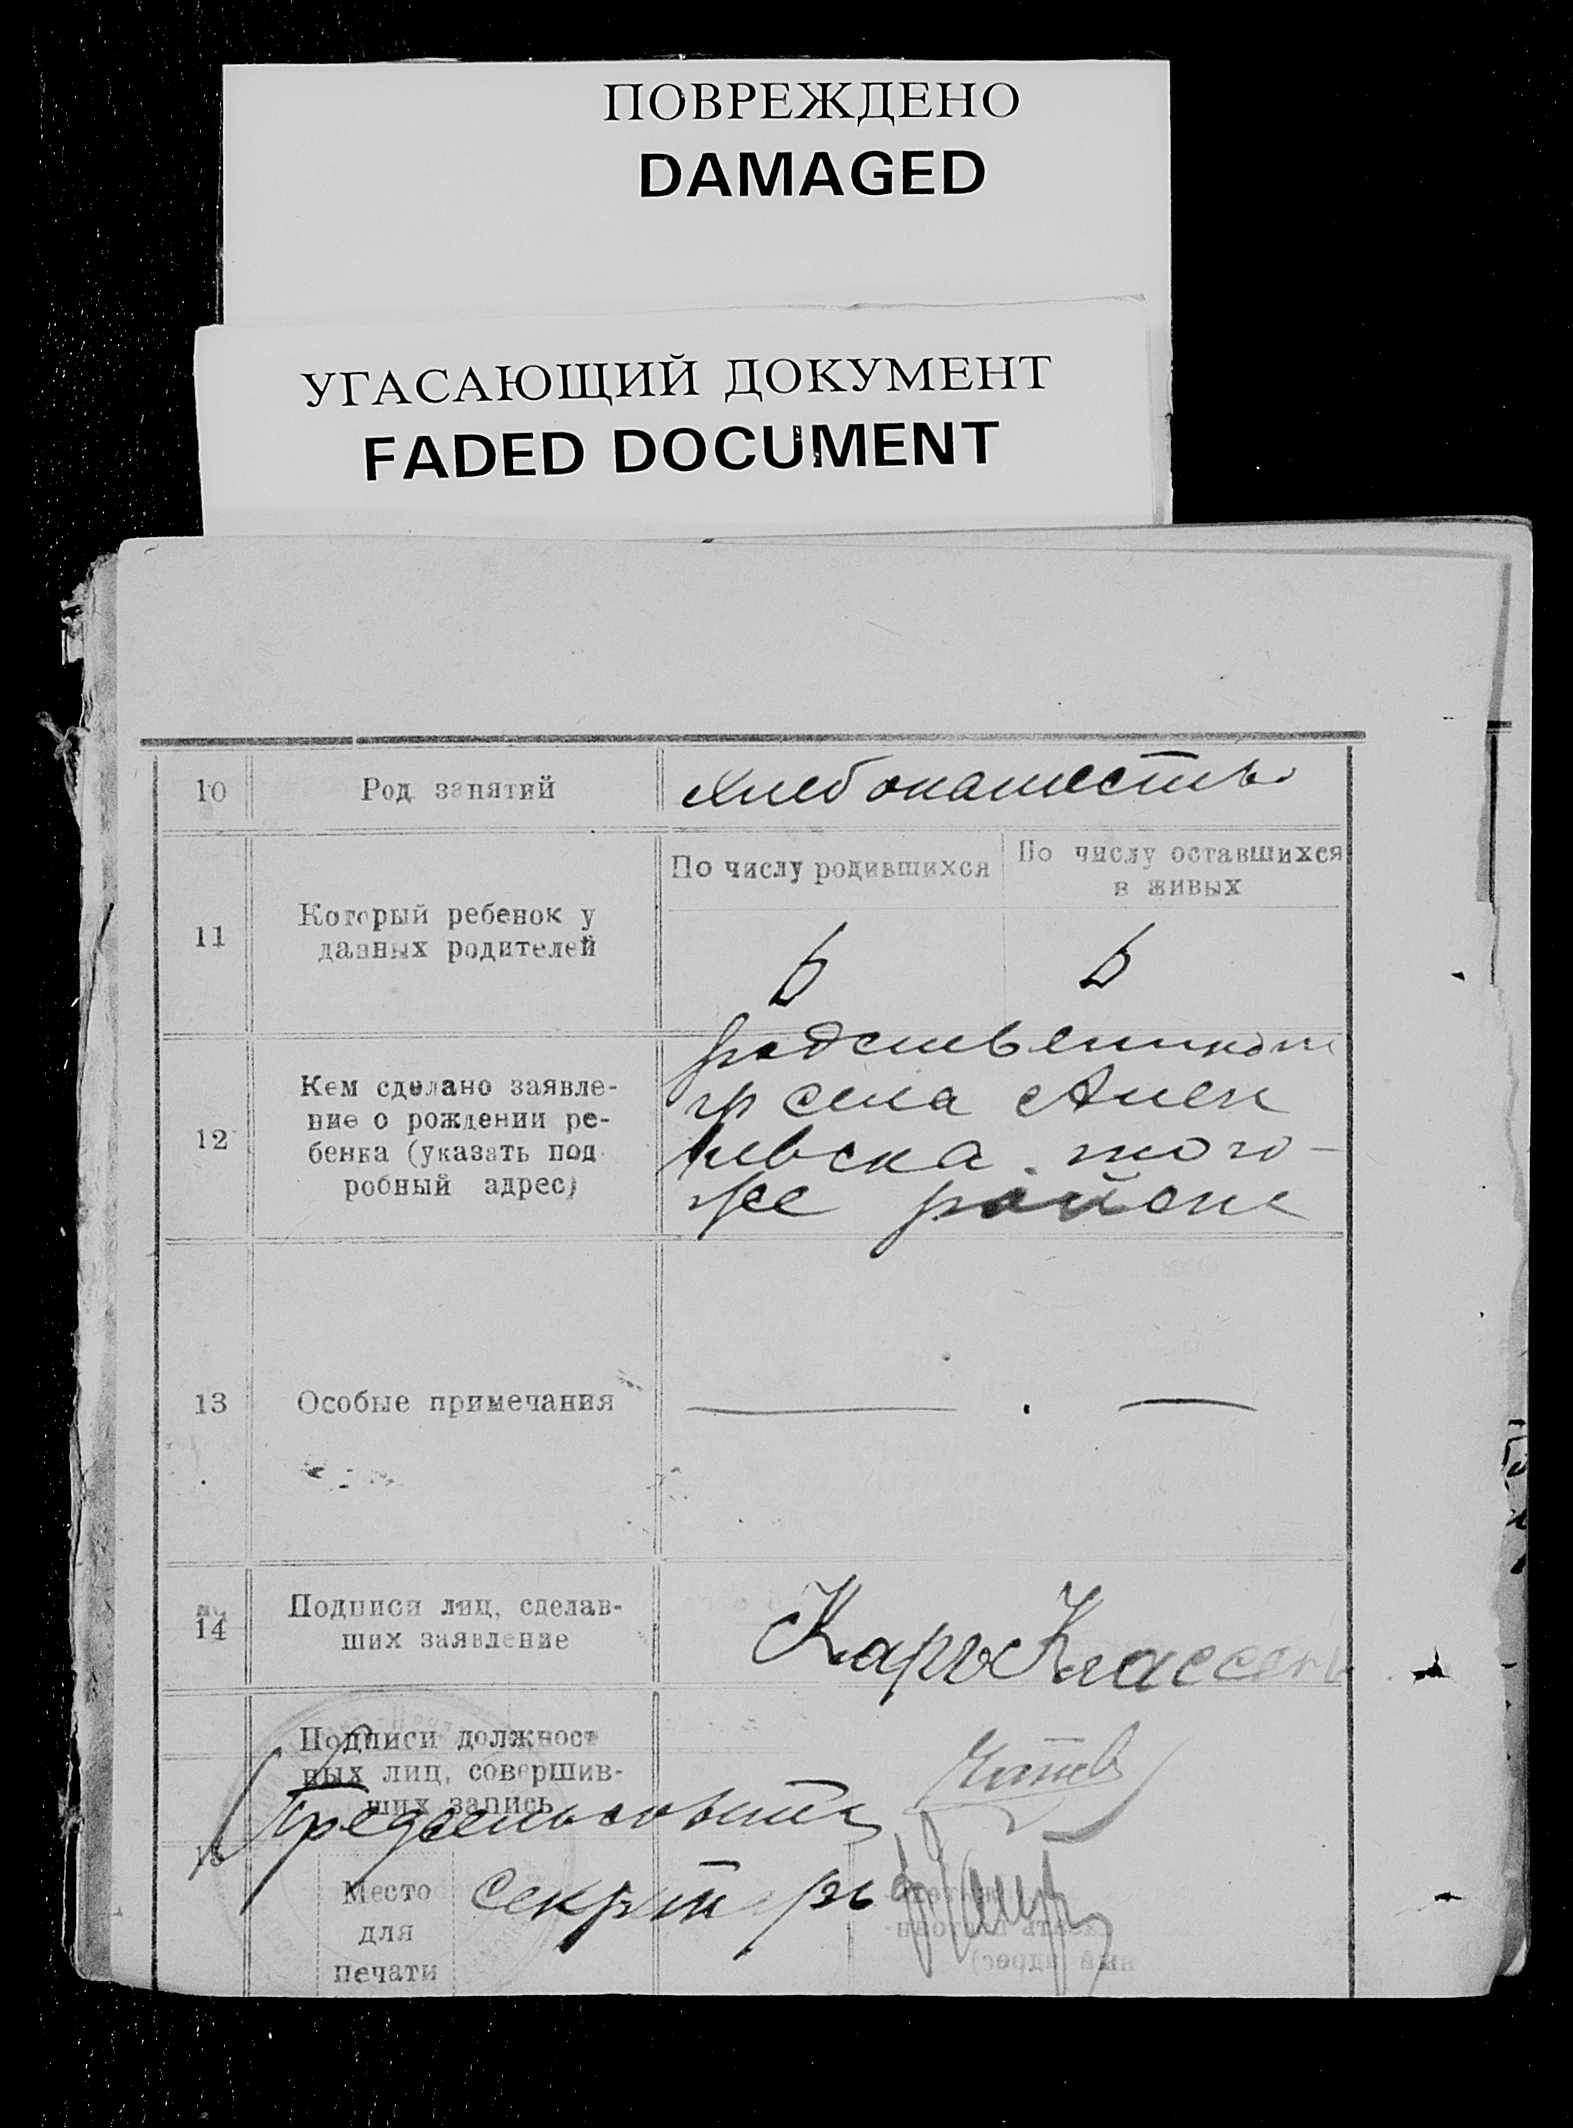 ПОВРЕЖДЕНО
DAMAGED
УГАСАЮЩИЙ ДОКУМЕНТ
FADED DOCUMENT
10 Род занятий хлебопашество
11 Который ребенок у
данных родителей
По числу родившихся
По числу оставшихся
в живых
6 6
12 Кем сделано заявле-
ние о рождении ре-
бенка (указать под
робный адрес)
родственником
гр села Алек
евска того-
же района
13 Особые примечания
14 Подписи лиц, сделав-
ших заявление
Каръ Классенъ
Подписи должност
ных лиц, совершив-
ших запись
Предсельсовета
15
Место
для
печати
секретарь